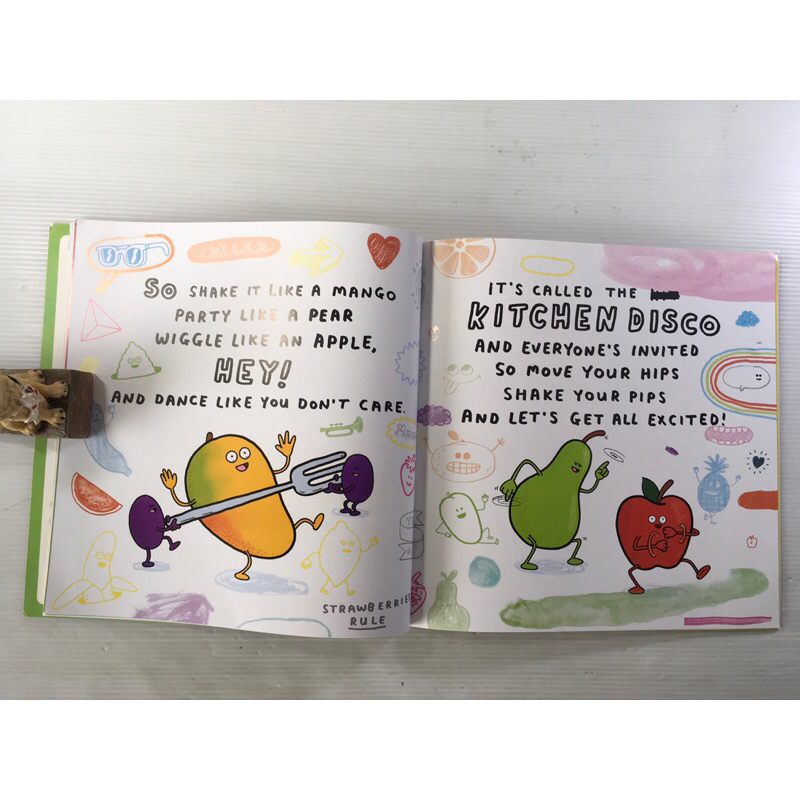 SO SHAKE IT LIKE A MANGO
PARTY LIKE A PEAR
WIGGLE LIKE AN APPLE,
HEY!
AND DANCE LIKE YOU DON'T CARE.
STRAWBERRIES
RULE
IT'S CALLED THE
KITCHEN DISCO
AND EVERYONE'S INVITED
SO MOVE YOUR HIPS
SHAKE YOUR PIPS
AND LET'S GET ALL EXCITED!